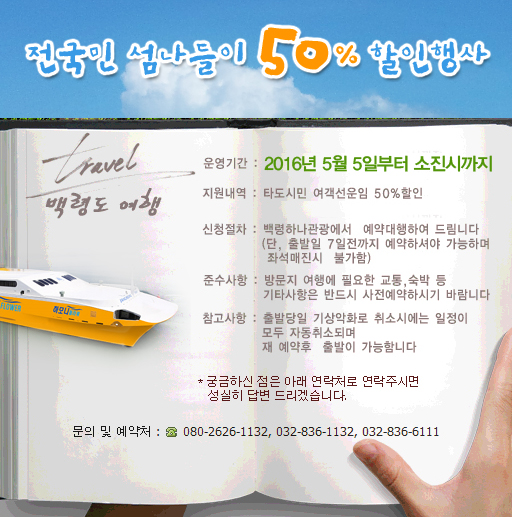 전국민 섬나들이 50% 할인행사
travel
백령도 여행
운영기간 : 2016년 5월 5일부터 소진시까지
지원내역 : 타도시민 여객선운임 50%할인
신청절차 : 백령하나관광에서 예약대행하여 드림니다
(단, 출발일 7일전까지 예약하셔야 가능하며
좌석매진시 불가함)
준수사항 : 방문지 여행에 필요한 교통,숙박 등
기타사항은 반드시 사전예약하시기 바랍니다
참고사항 : 출발당일 기상악화로 취소시에는 일정이
모두 자동취소되며
재 예약후 출발이 가능함니다
* 궁금하신 점은 아래 연락처로 연락주시면
성실히 답변 드리겠습니다.
문의 및 예약처 : ☎ 080-2626-1132, 032-836-1132, 032-836-6111